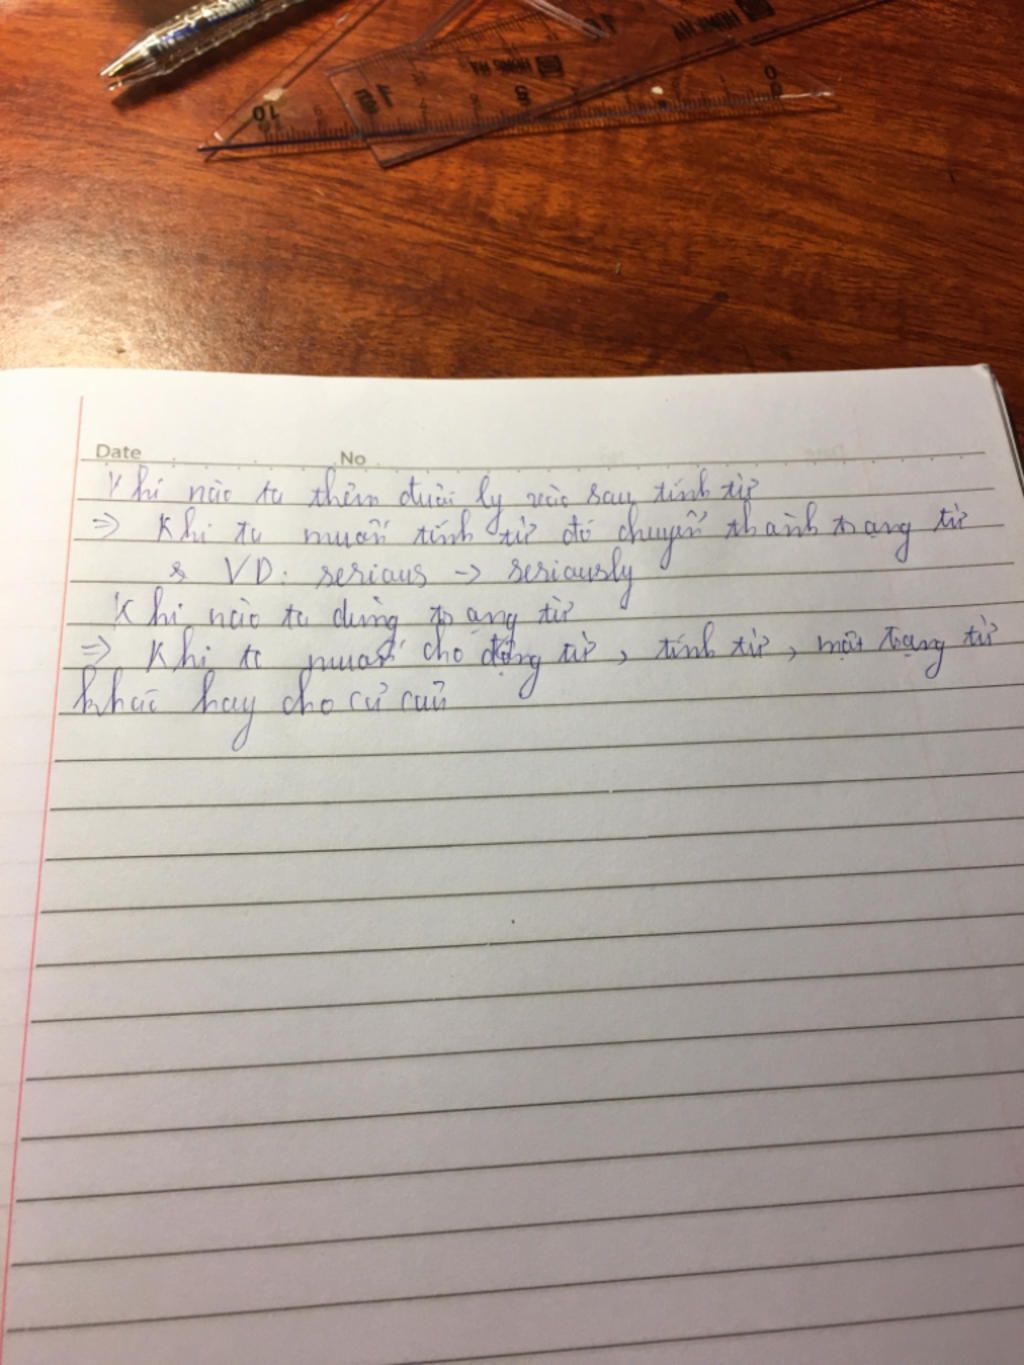 10 9 5 0
HONG HA
HONG HA
15
Date No
Khi nào ta thêm đuôi ly vào sau tính từ
=> Khi ta muốn tính từ đó chuyển thành trạng từ
& VD: serious -> seriously
Khi nào ta dùng trạng từ
=> Khi ta muố cho động từ, tính từ, một trạng từ
khác hay cho cả câu